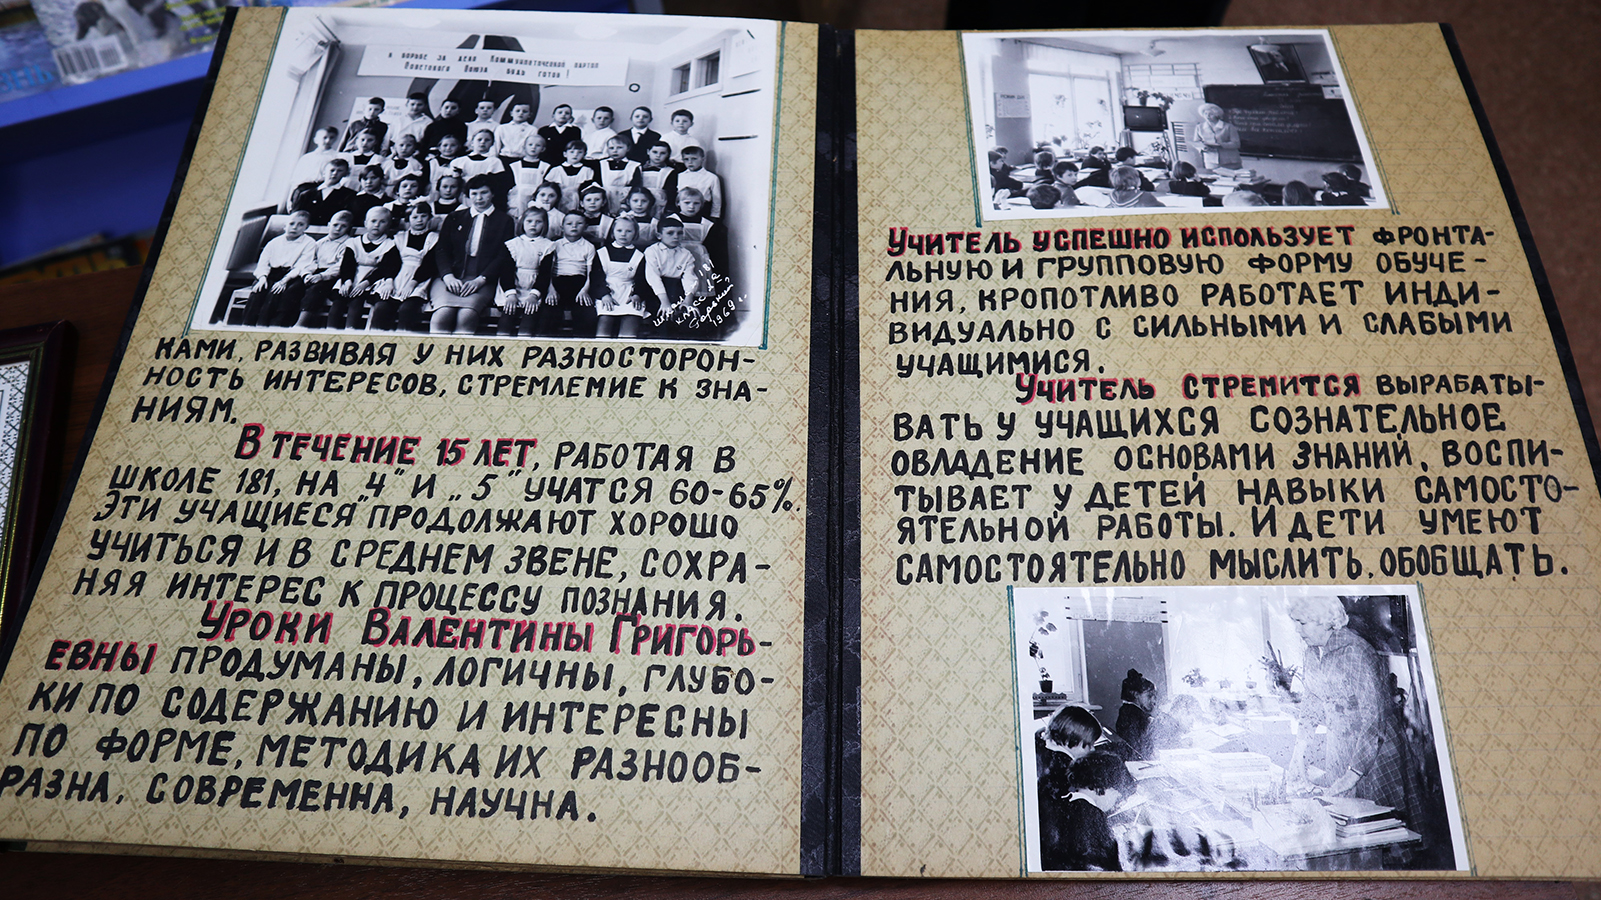 К БОРЬБЕ ЗА ДЕЛО Коммунистической партии
Советского Союза БУДЬ ГОТОВ!
школа 181
класс 1 "а"
Горький
1969 г.
КАМИ, РАЗВИВАЯ У НИХ РАЗНОСТОРОН-
НОСТЬ ИНТЕРЕСОВ, СТРЕМЛЕНИЕ К ЗНА-
НИЯМ.
В ТЕЧЕНИЕ 15 ЛЕТ, РАБОТАЯ В
ШКОЛЕ 181, НА "4" И „5" УЧАТСЯ 60-65%.
ЭТИ УЧАЩИЕСЯ ПРОДОЛЖАЮТ ХОРОШО
УЧИТЬСЯ И В СРЕДНЕМ ЗВЕНЕ, СОХРА-
НЯЯ ИНТЕРЕС К ПРОЦЕССУ ПОЗНАНИЯ.
УРОКИ ВАЛЕНТИНЫ ГРИГОРЬ-
ЕВНЫ ПРОДУМАНЫ, ЛОГИЧНЫ, ГЛУБО-
КИ ПО СОДЕРЖАНИЮ И ИНТЕРЕСНЫ
ПО ФОРМЕ, МЕТОДИКА ИХ РАЗНООБ-
РАЗНА, СОВРЕМЕННА, НАУЧНА.
УЧИТЕЛЬ УСПЕШНО ИСПОЛЬЗУЕТ ФРОНТА-
ЛЬНУЮ И ГРУППОВУЮ ФОРМУ ОБУЧЕ-
НИЯ, КРОПОТЛИВО РАБОТАЕТ ИНДИ-
ВИДУАЛЬНО С СИЛЬНЫМИ И СЛАБЫМИ
УЧАЩИМИСЯ.
УЧИТЕЛЬ СТРЕМИТСЯ ВЫРАБАТЫ-
ВАТЬ У УЧАЩИХСЯ СОЗНАТЕЛЬНОЕ
ОВЛАДЕНИЕ ОСНОВАМИ ЗНАНИЙ, ВОСПИ-
ТЫВАЕТ У ДЕТЕЙ НАВЫКИ САМОСТО-
ЯТЕЛЬНОЙ РАБОТЫ. И ДЕТИ УМЕЮТ
САМОСТОЯТЕЛЬНО МЫСЛИТЬ, ОБОБЩАТЬ.